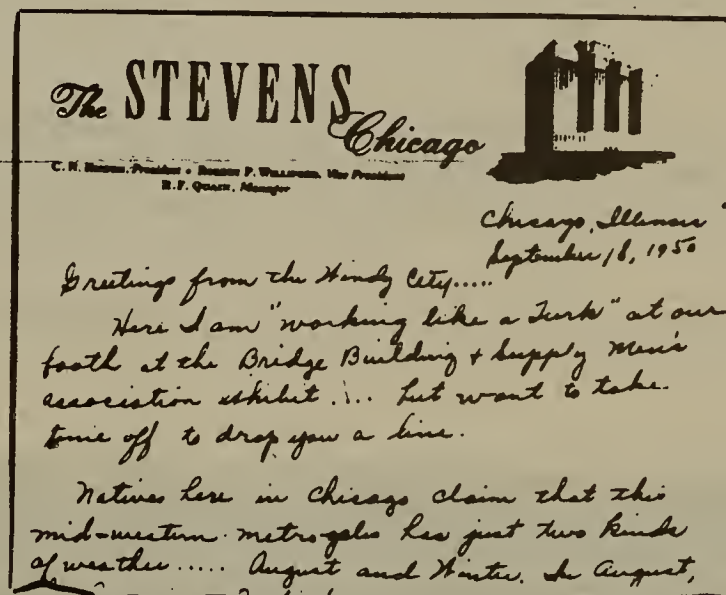 The STEVENS
Chicago
C. N. Hilton, President • Robert P. Williford, Vice President
R. F. Quain, Manager
Chicago, Illinois
September 18, 1950
Greetings from the Windy City.....
Here I am "working like a Turk" at our
booth at the Bridge Building + Supply Men's
association exhibit .... but want to take
time off to drop you a line.
Natives here in Chicago claim that this
mid-western metropolis has just two kinds
of weather ..... August and Winter. In August,